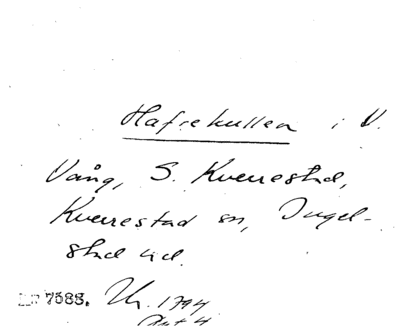 Hafrekullen i V.
Vång, S. Kverrestad,
Kverrestad sn, Ingel-
stad hd.
7588. Uh. 1794
Akt 4